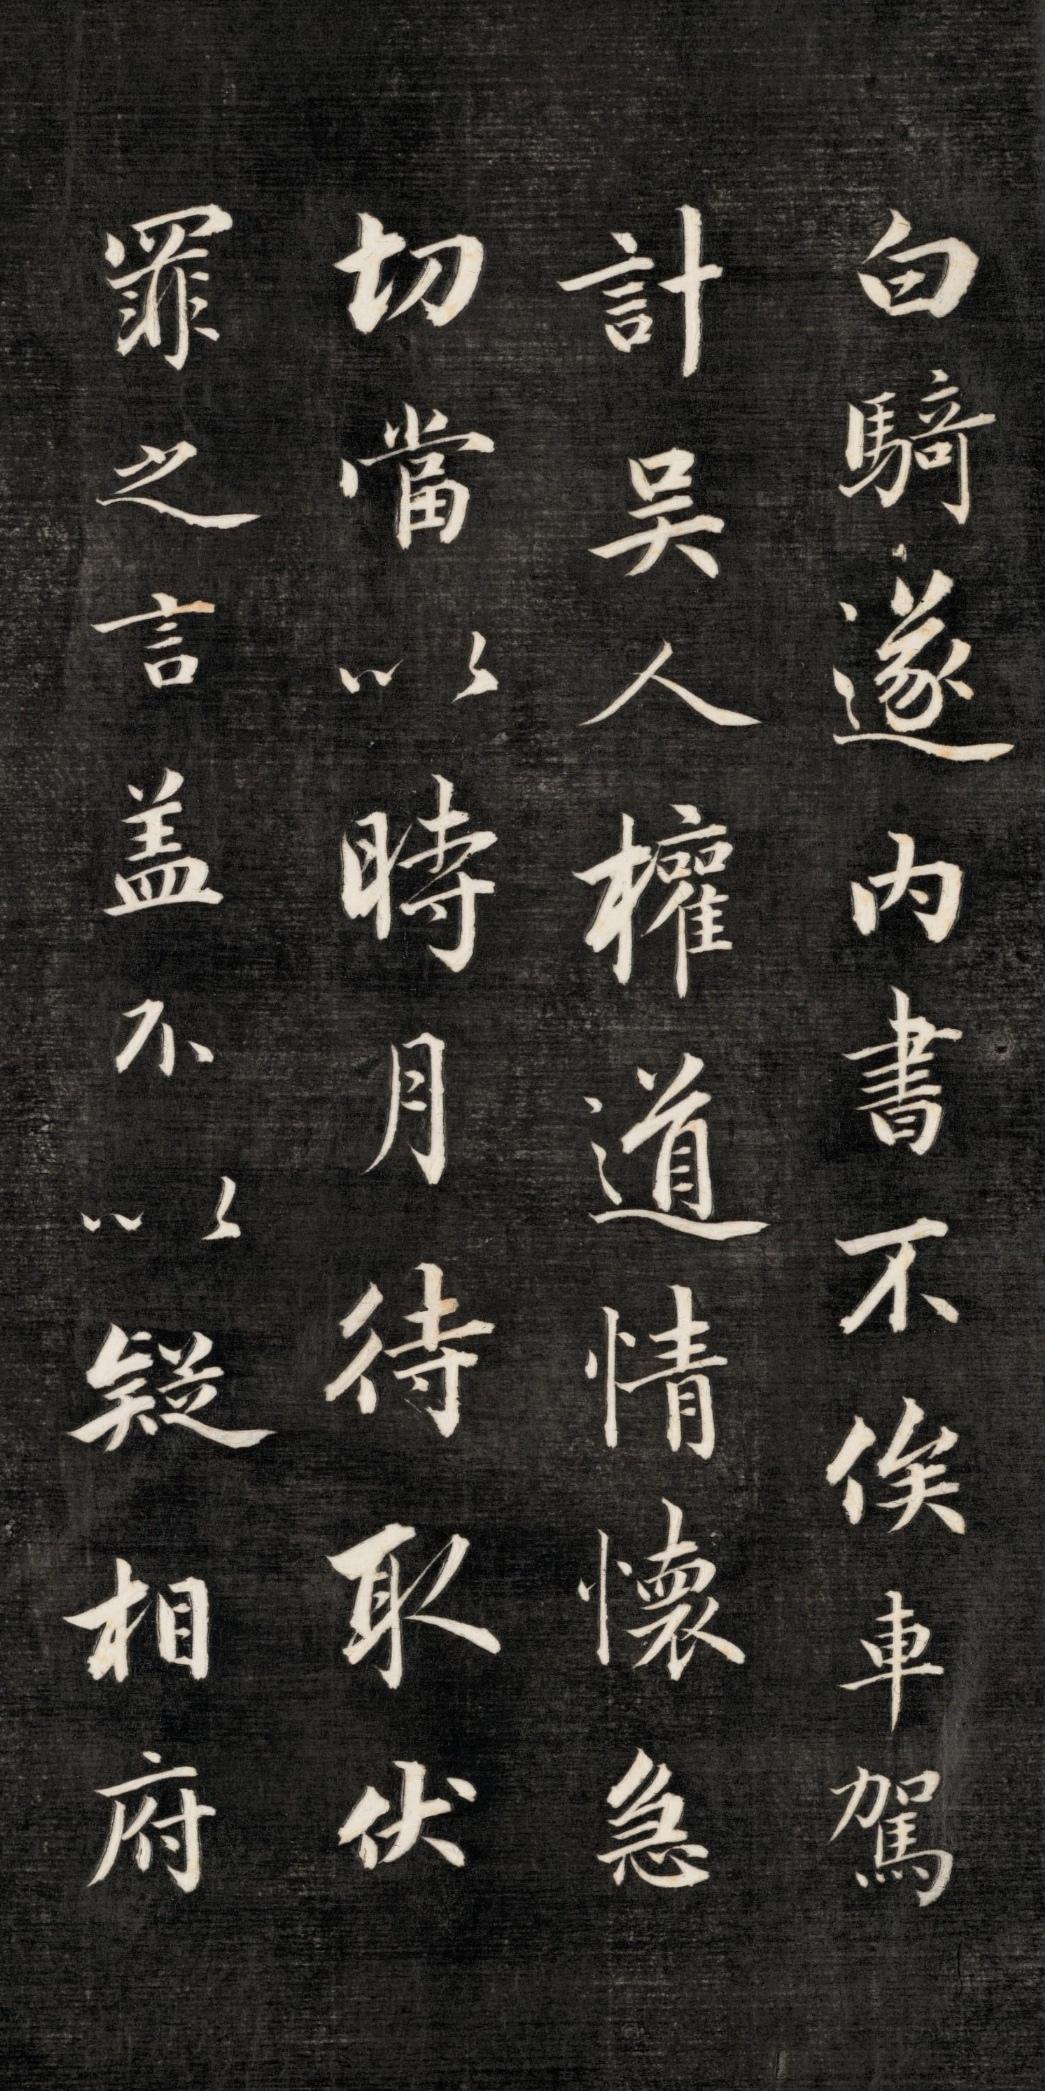 白騎遂內書不俟車駕
計吳人權道情懷急
切當以時月待取伏
罪之言盖不以疑相府